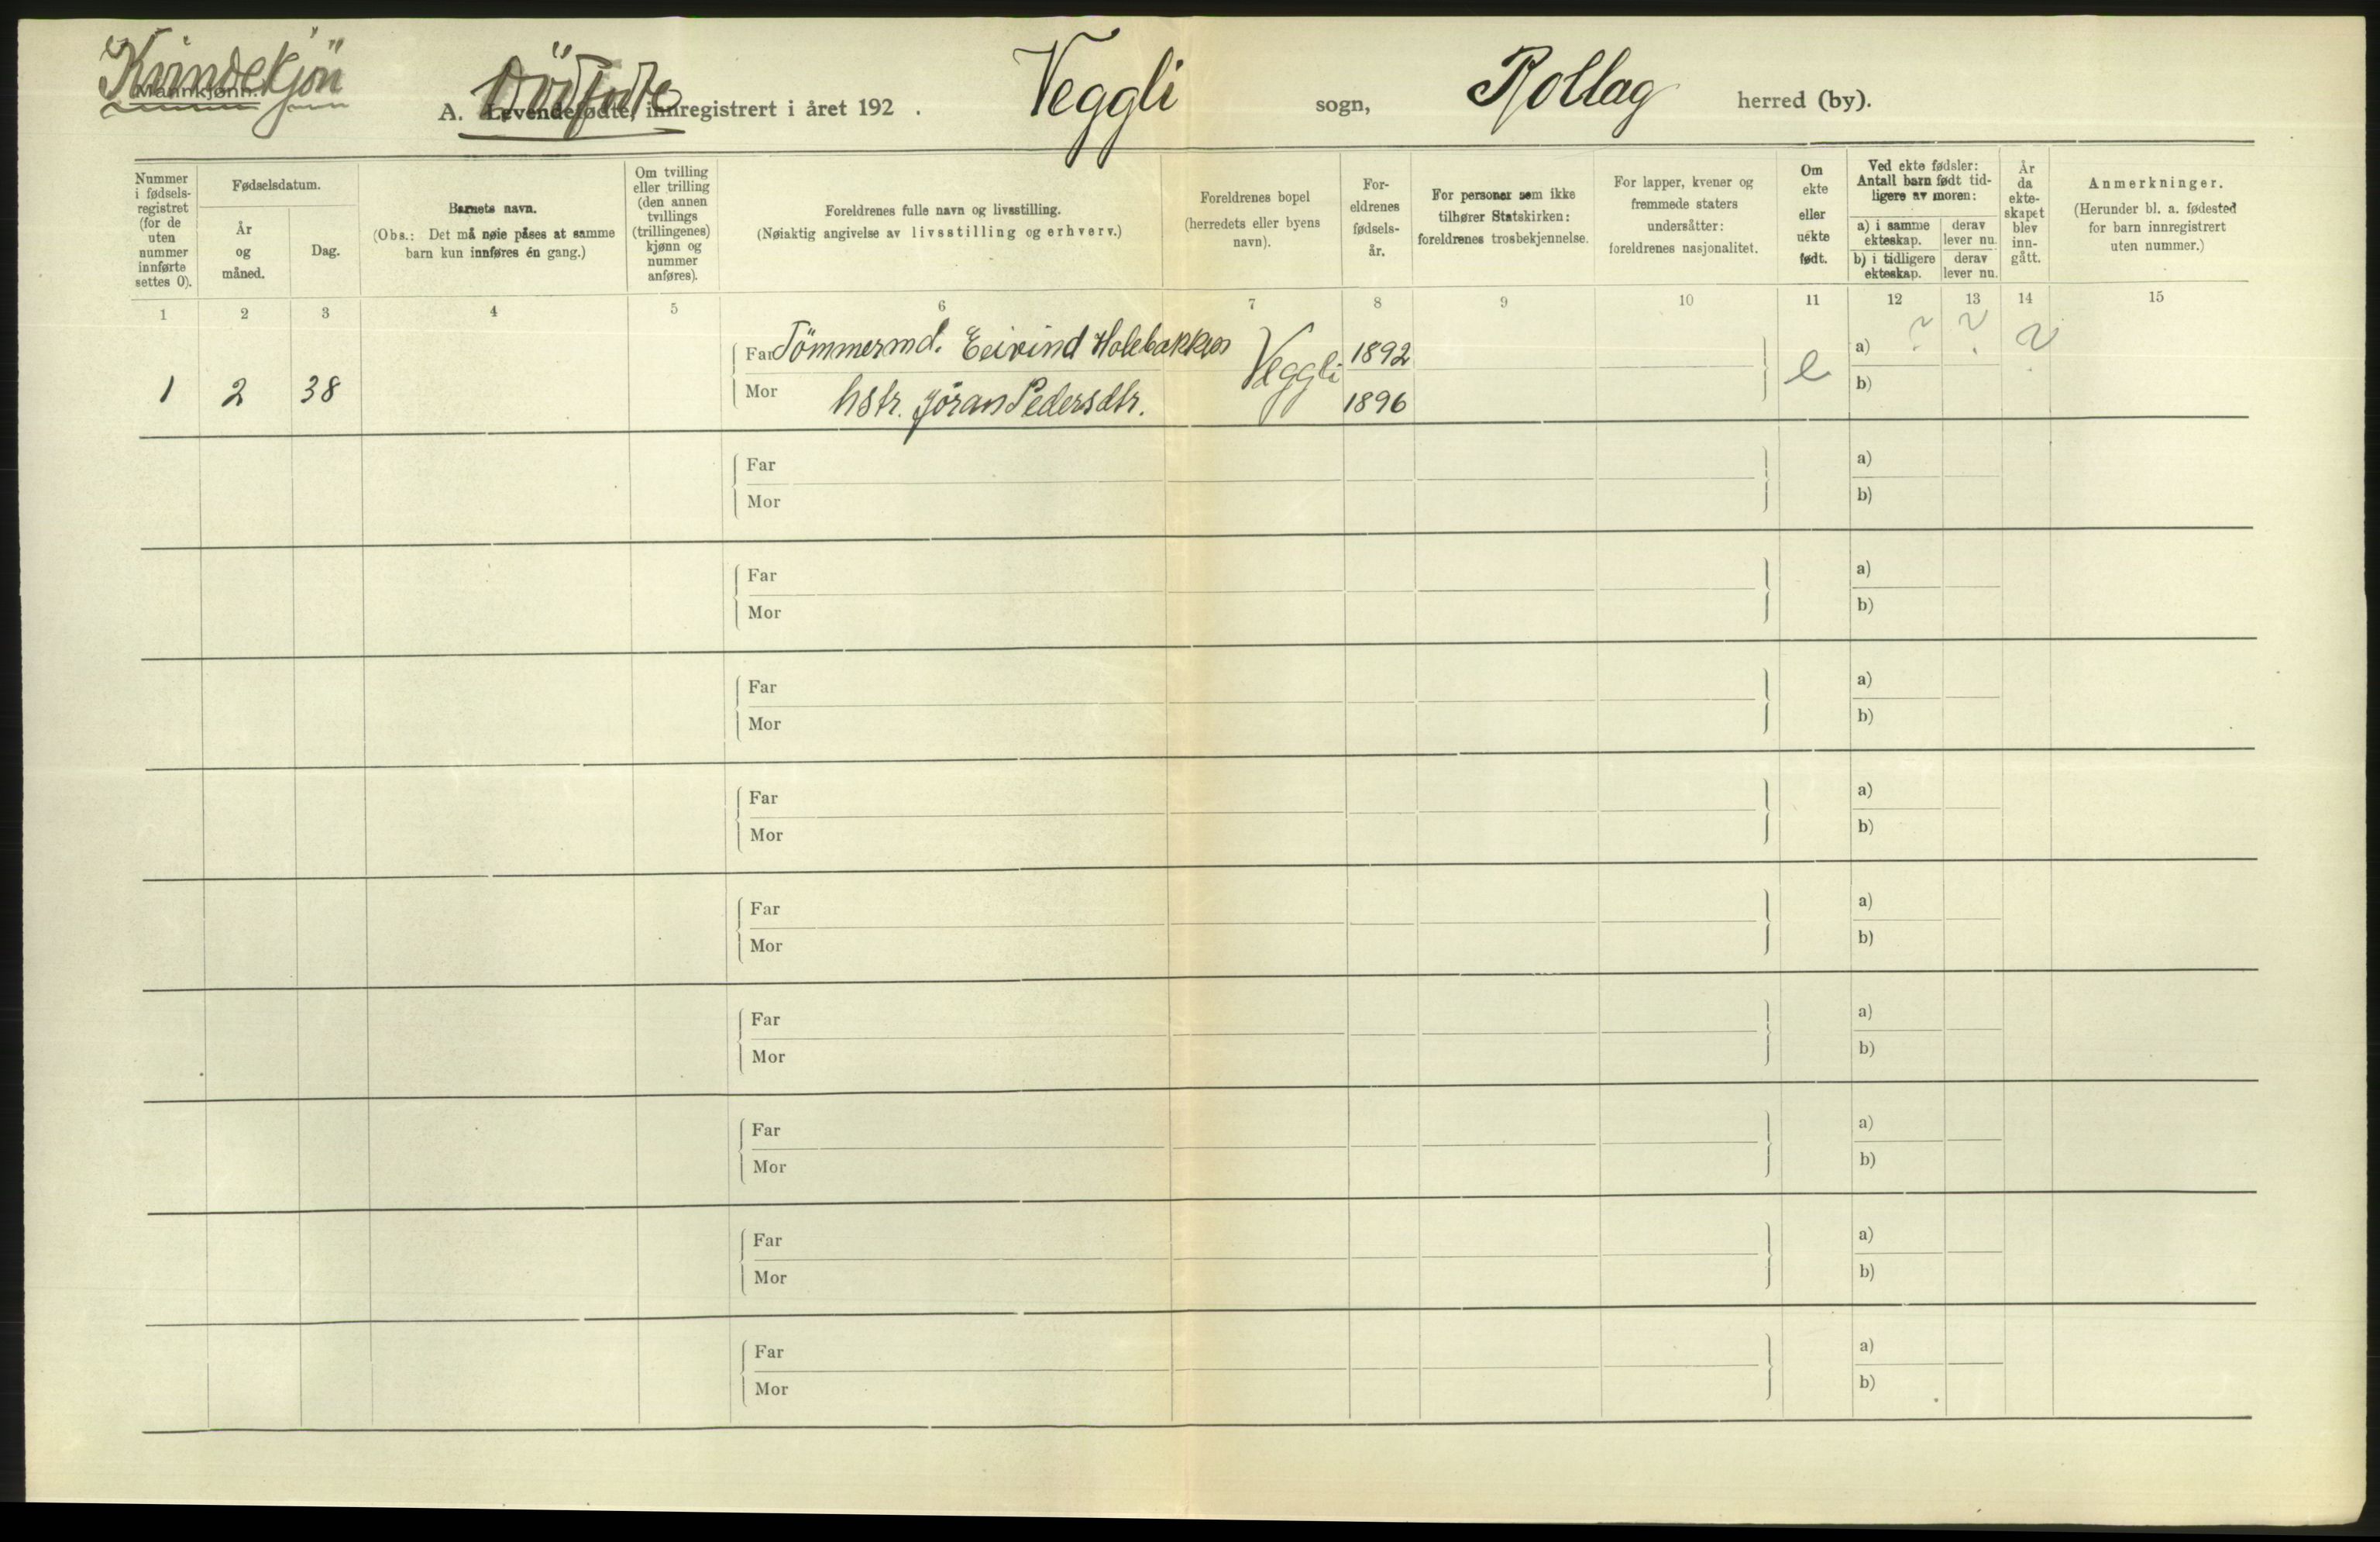 Kvindekjön
Mannkjønn.
Dödfödte
A. Levendefødte, innregistrert i året 192 . Veggli sogn, Rollag herred (by).
Nummer
i fødsels-
registret
(for de
uten
nummer
innførte
settes 0).
Fødselsdatum.
År
og
måned.
Dag.
Barnets navn.
(Obs.: Det må nøie påses at samme
barn kun innføres én gang.)
Om tvilling
eller trilling
(den annen
tvillings
(trillingenes)
kjønn og
nummer
anføres).
Foreldrenes fulle navn og livsstilling.
(Nøiaktig angivelse av livsstilling og erhverv.)
Foreldrenes bopel
(herredets eller byens
navn).
For-
eldrenes
fødsels-
år.
For personer som ikke
tilhører Statskirken:
foreldrenes trosbekjennelse.
For lapper, kvener og
fremmede staters
undersåtter:
foreldrenes nasjonalitet.
Om
ekte
eller
uekte
født.
Ved ekte fødsler:
Antall barn født tid-
ligere av moren:
a) i samme
ekteskap.
derav
lever nu.
b) i tidligere
ekteskap.
derav
lever nu.
År
da
ekte-
skapet
blev
inn-
gått.
Anmerkninger.
(Herunder bl. a. fødested
for barn innregistrert
uten nummer.)
1 2 3 4 5 6 7 8 9 10 11 12 13 14 15
Far Tömmermd. Eivind Holebakken Veggli 1892 e a) ? ? ?
1 2 38 Mor hstr. Jöran Pedersdtr. 1896 b)
Far a)
Mor b)
Far a)
Mor b)
Far a)
Mor b)
Far a)
Mor b)
Far a)
Mor b)
Far a)
Mor b)
Far a)
Mor b)
Far a)
Mor b)
Far a)
Mor b)